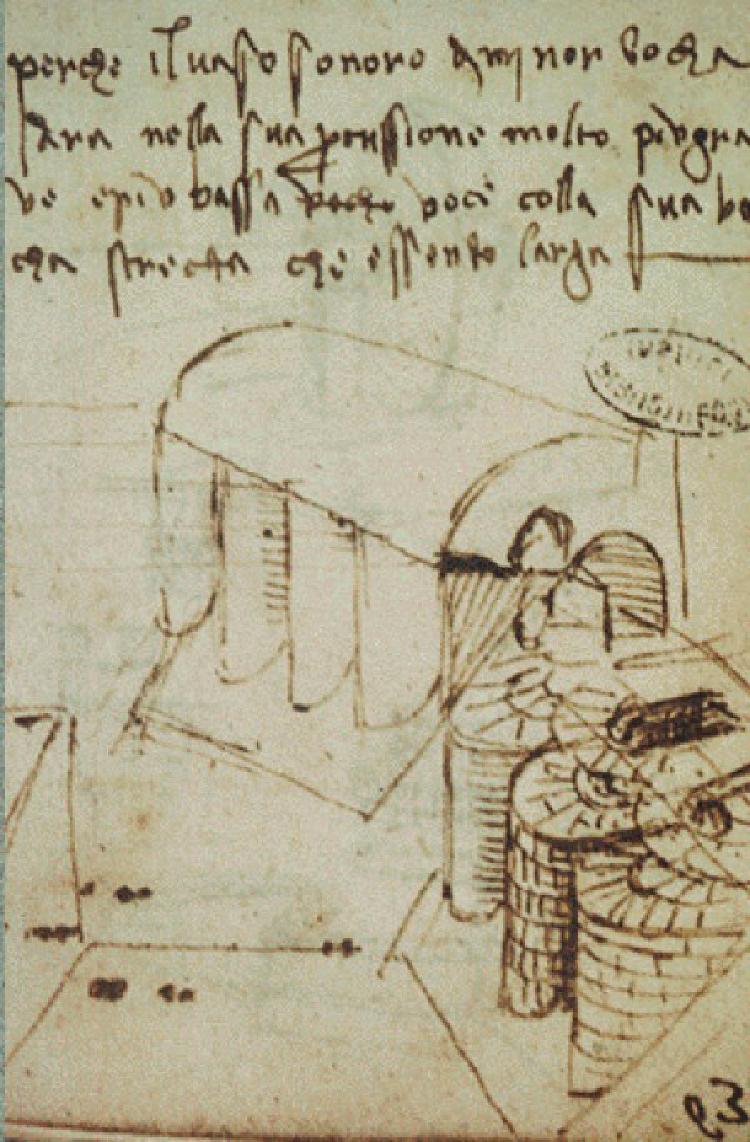 perche il vaso sonoro di minor bocha
dara nella sua percussione molto piv gra
ve e piv bassa voce colla sua bo
cha strecta che essendo larga
23